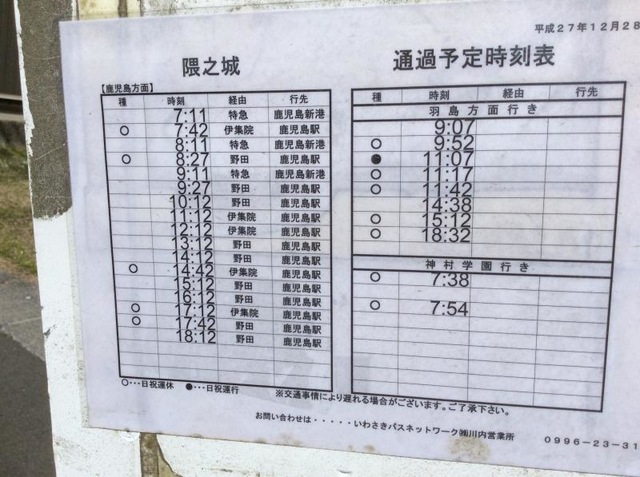 平成27年12月28
隈之城 通過予定時刻表
【鹿児島方面】
種 時刻 経由 行先
7:11 特急 鹿児島新港
○ 7:42 伊集院 鹿児島駅
8:11 特急 鹿児島新港
○ 8:27 野田 鹿児島駅
9:11 特急 鹿児島新港
9:27 野田 鹿児島駅
10:12 野田 鹿児島駅
11:12 伊集院 鹿児島駅
12:12 伊集院 鹿児島駅
13:12 野田 鹿児島駅
14:12 野田 鹿児島駅
○ 14:42 伊集院 鹿児島駅
15:12 野田 鹿児島駅
16:12 野田 鹿児島駅
○ 17:12 伊集院 鹿児島駅
○ 17:42 野田 鹿児島駅
18:12 野田 鹿児島駅
種 時刻 経由 行先
羽島方面行き
9:07
○ 9:52
● 11:07
○ 11:17
○ 11:42
14:38
○ 15:12
○ 18:32
神村学園行き
○ 7:38
○ 7:54
○・・・日祝運休 ●・・・日祝運行
※交通事情により遅れる場合がございます。ご了承下さい。
お問い合わせは・・・・・いわさきバスネットワーク㈱川内営業所 0996-23-31